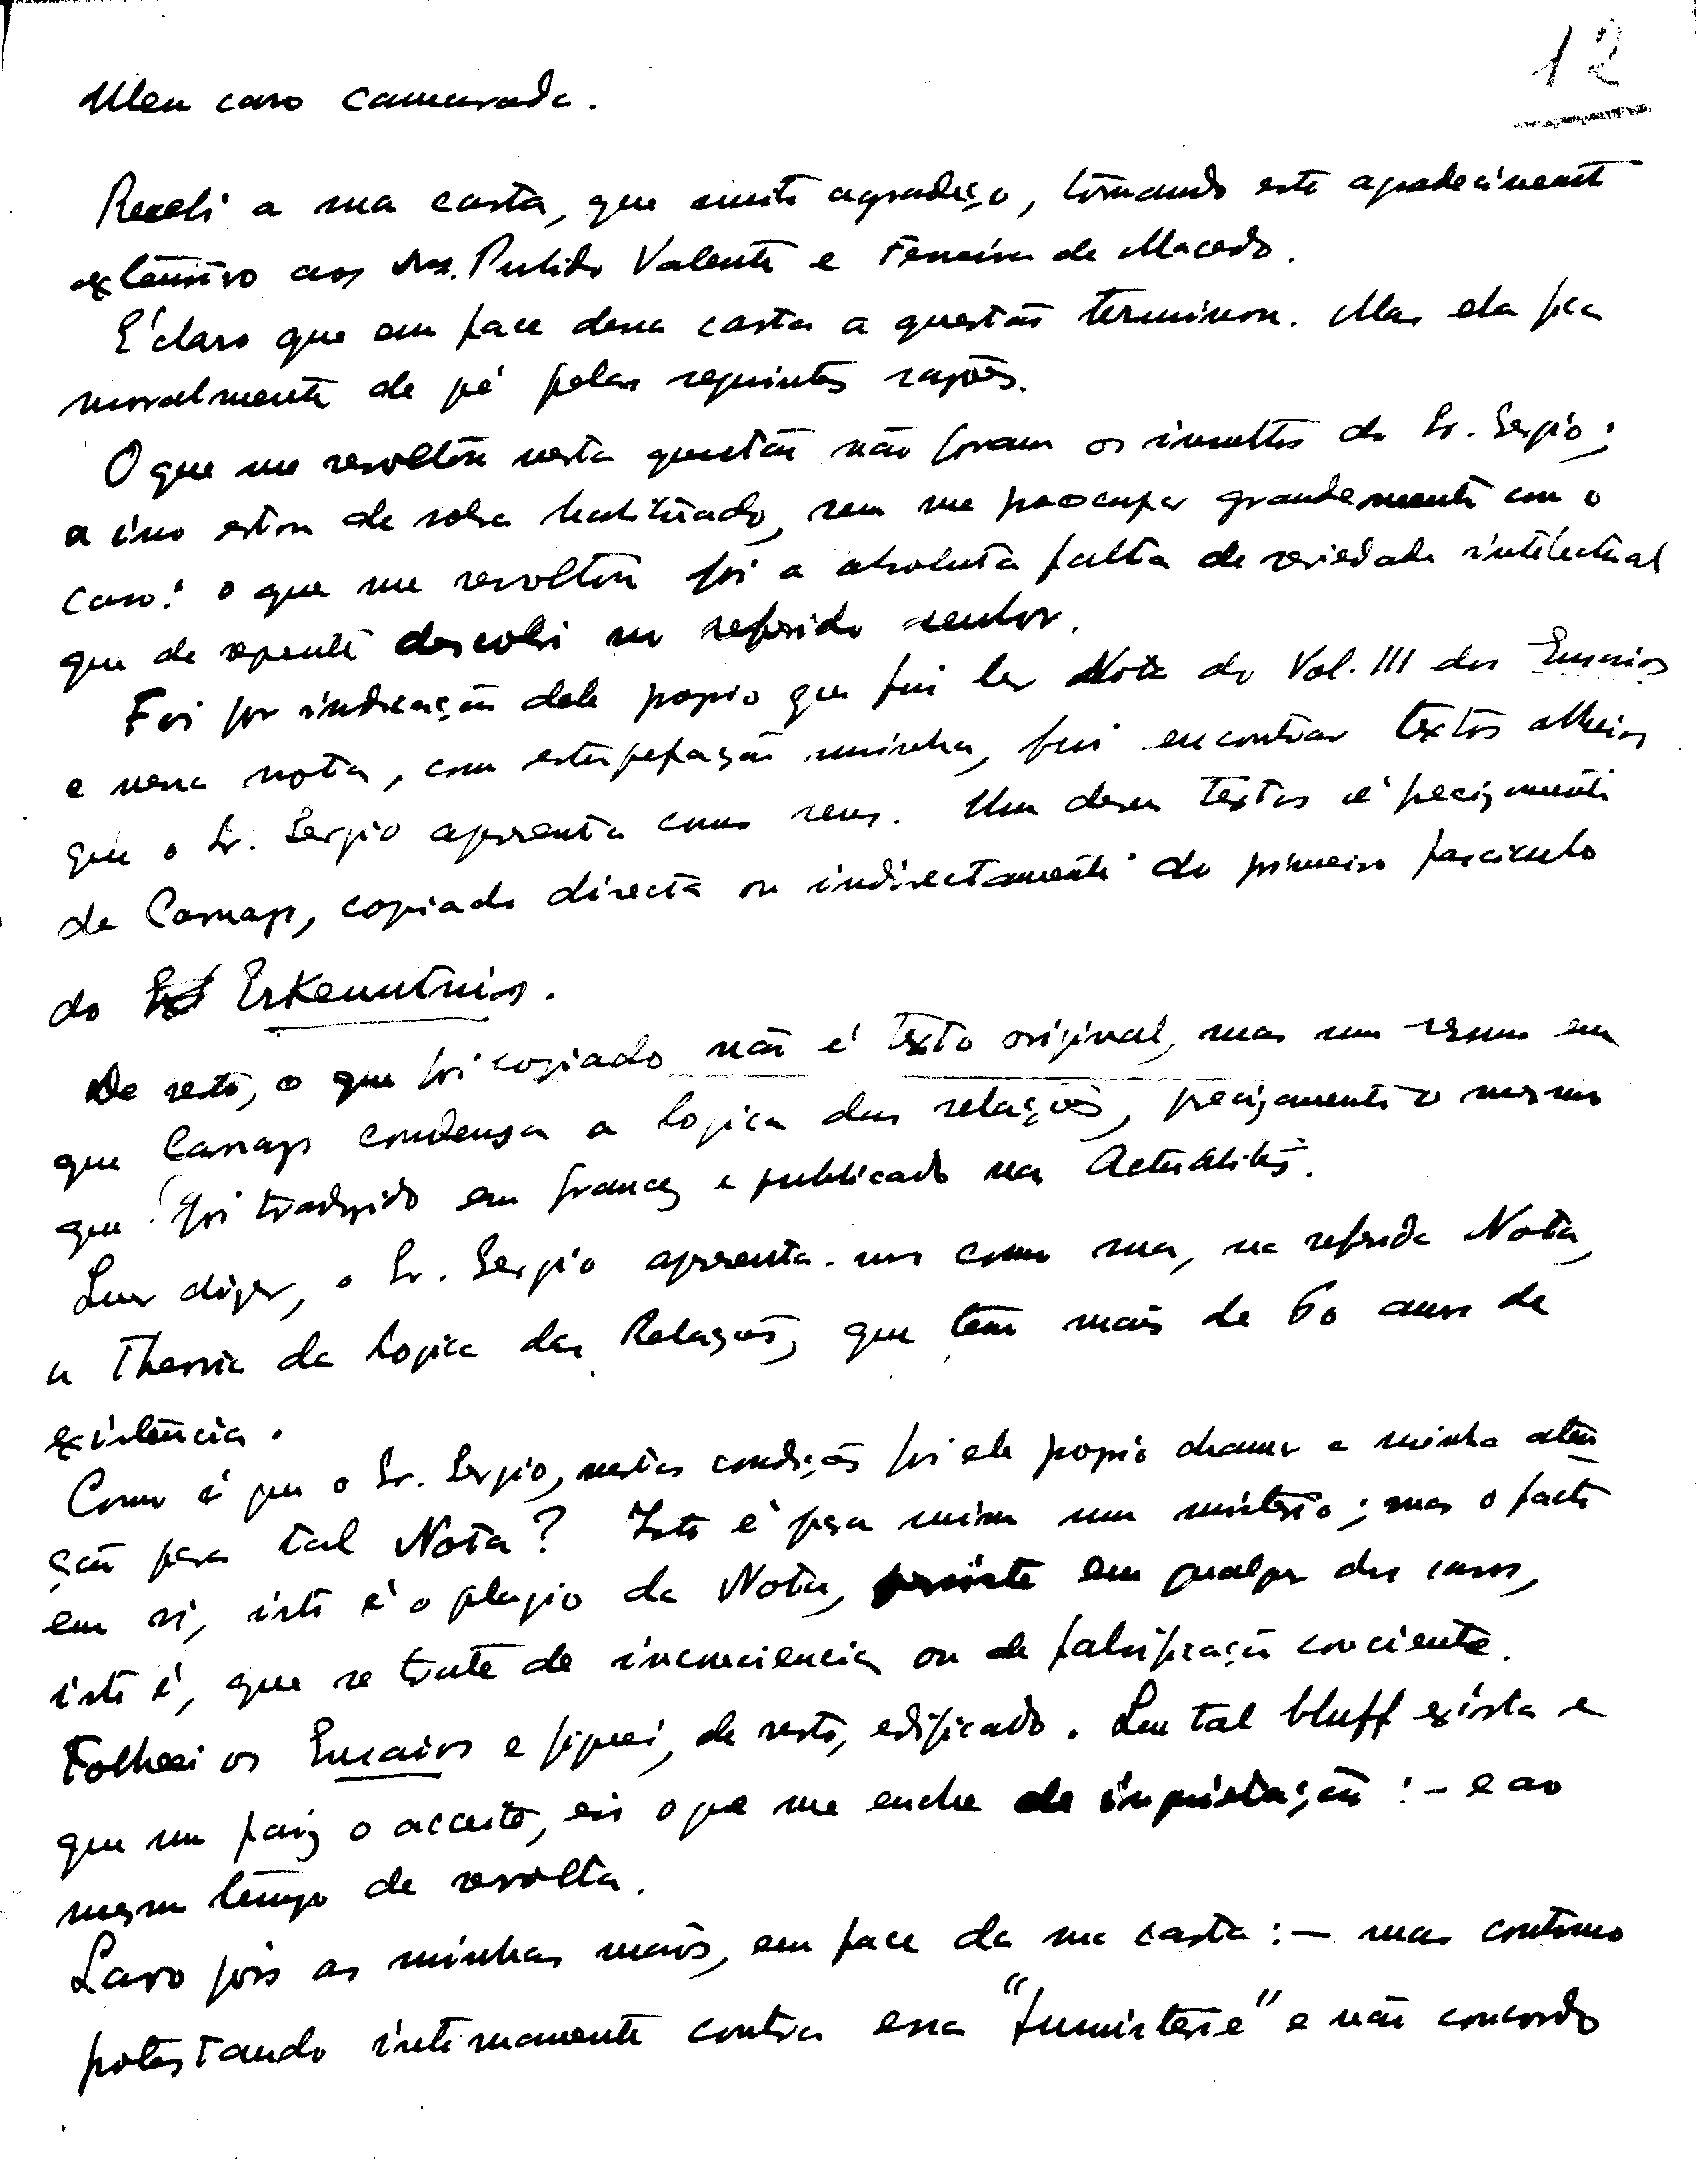 12
Meu caro camarada.
Recebi a sua carta, que muito agradeço, tornando este agradecimento
extensivo aos Drs. Pulido Valente e Ferreira de Macedo.
É claro que em face dessa carta a questão terminou. Mas ela fica
moralmente de pé pelas seguintes razões.
O que me revoltou nesta questão não foram os insultos do Sr. Sergio;
a isso estou de sobra habituado, sem me preocupar grandemente com o
caso: o que me revoltou foi a absoluta falta de seriedade intelectual
que de repente descobri no referido senhor.
Foi por indicação dele proprio que fui ler a Nota do Vol. III dos Ensaios
e nessa nota, com estupefação minha, fui encontrar textos alheios
que o Sr. Sergio apresenta como seus. Um desses textos é precizamente
de Carnap, copiado directa ou indirectamente do primeiro fasciculo
do Erkenntnis.
De resto, o que foi copiado não é texto original, mas um resumo em
que Carnap condensa a logica das relações, precizamente o mesmo
que foi traduzido em francez e publicado nas Actualités.
Quer dizer, o Sr. Sergio apresenta-nos como sua, na referida Nota,
a Theoria da Logica das Relações, que tem mais de 60 anos de
existencia.
Como é que o Sr. Sergio, nestas condições foi ele proprio chamar a minha aten-
ção para tal Nota? Isto é para mim um misterio; mas o facto
em si, isto é o plagio da Nota, persiste em qualquer dos casos,
isto é, que se trate de inconsciencia ou de falsificação consciente.
Folheei os Ensaios e fiquei, de resto, edificado. Que tal bluff exista e
que um paiz o acceite, eis o que me enche de inquietação: - e ao
mesmo tempo de revolta.
Lavo pois as minhas mãos, em face da sua carta: - mas continuo
protestando intimamente contra essa "fumisterie" e não concordo